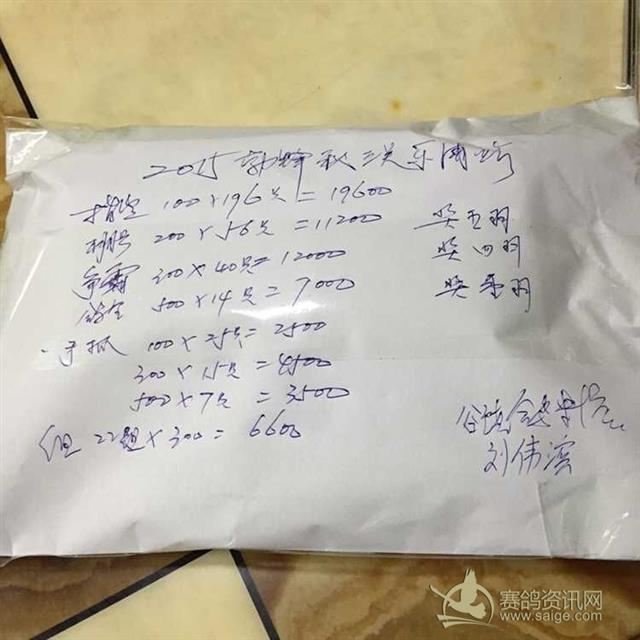 2015 秋三关
指定 100×196只=19600
200×56只=11200 奖五羽
争霸 300×40只=12000 奖四羽
500×14只=7000 奖叁羽
一手抓 100×25只=2500
300×15只=4500
500×7只=3500
组 22组×300=6600
刘伟滨
赛鸽资讯网
www.saige.com